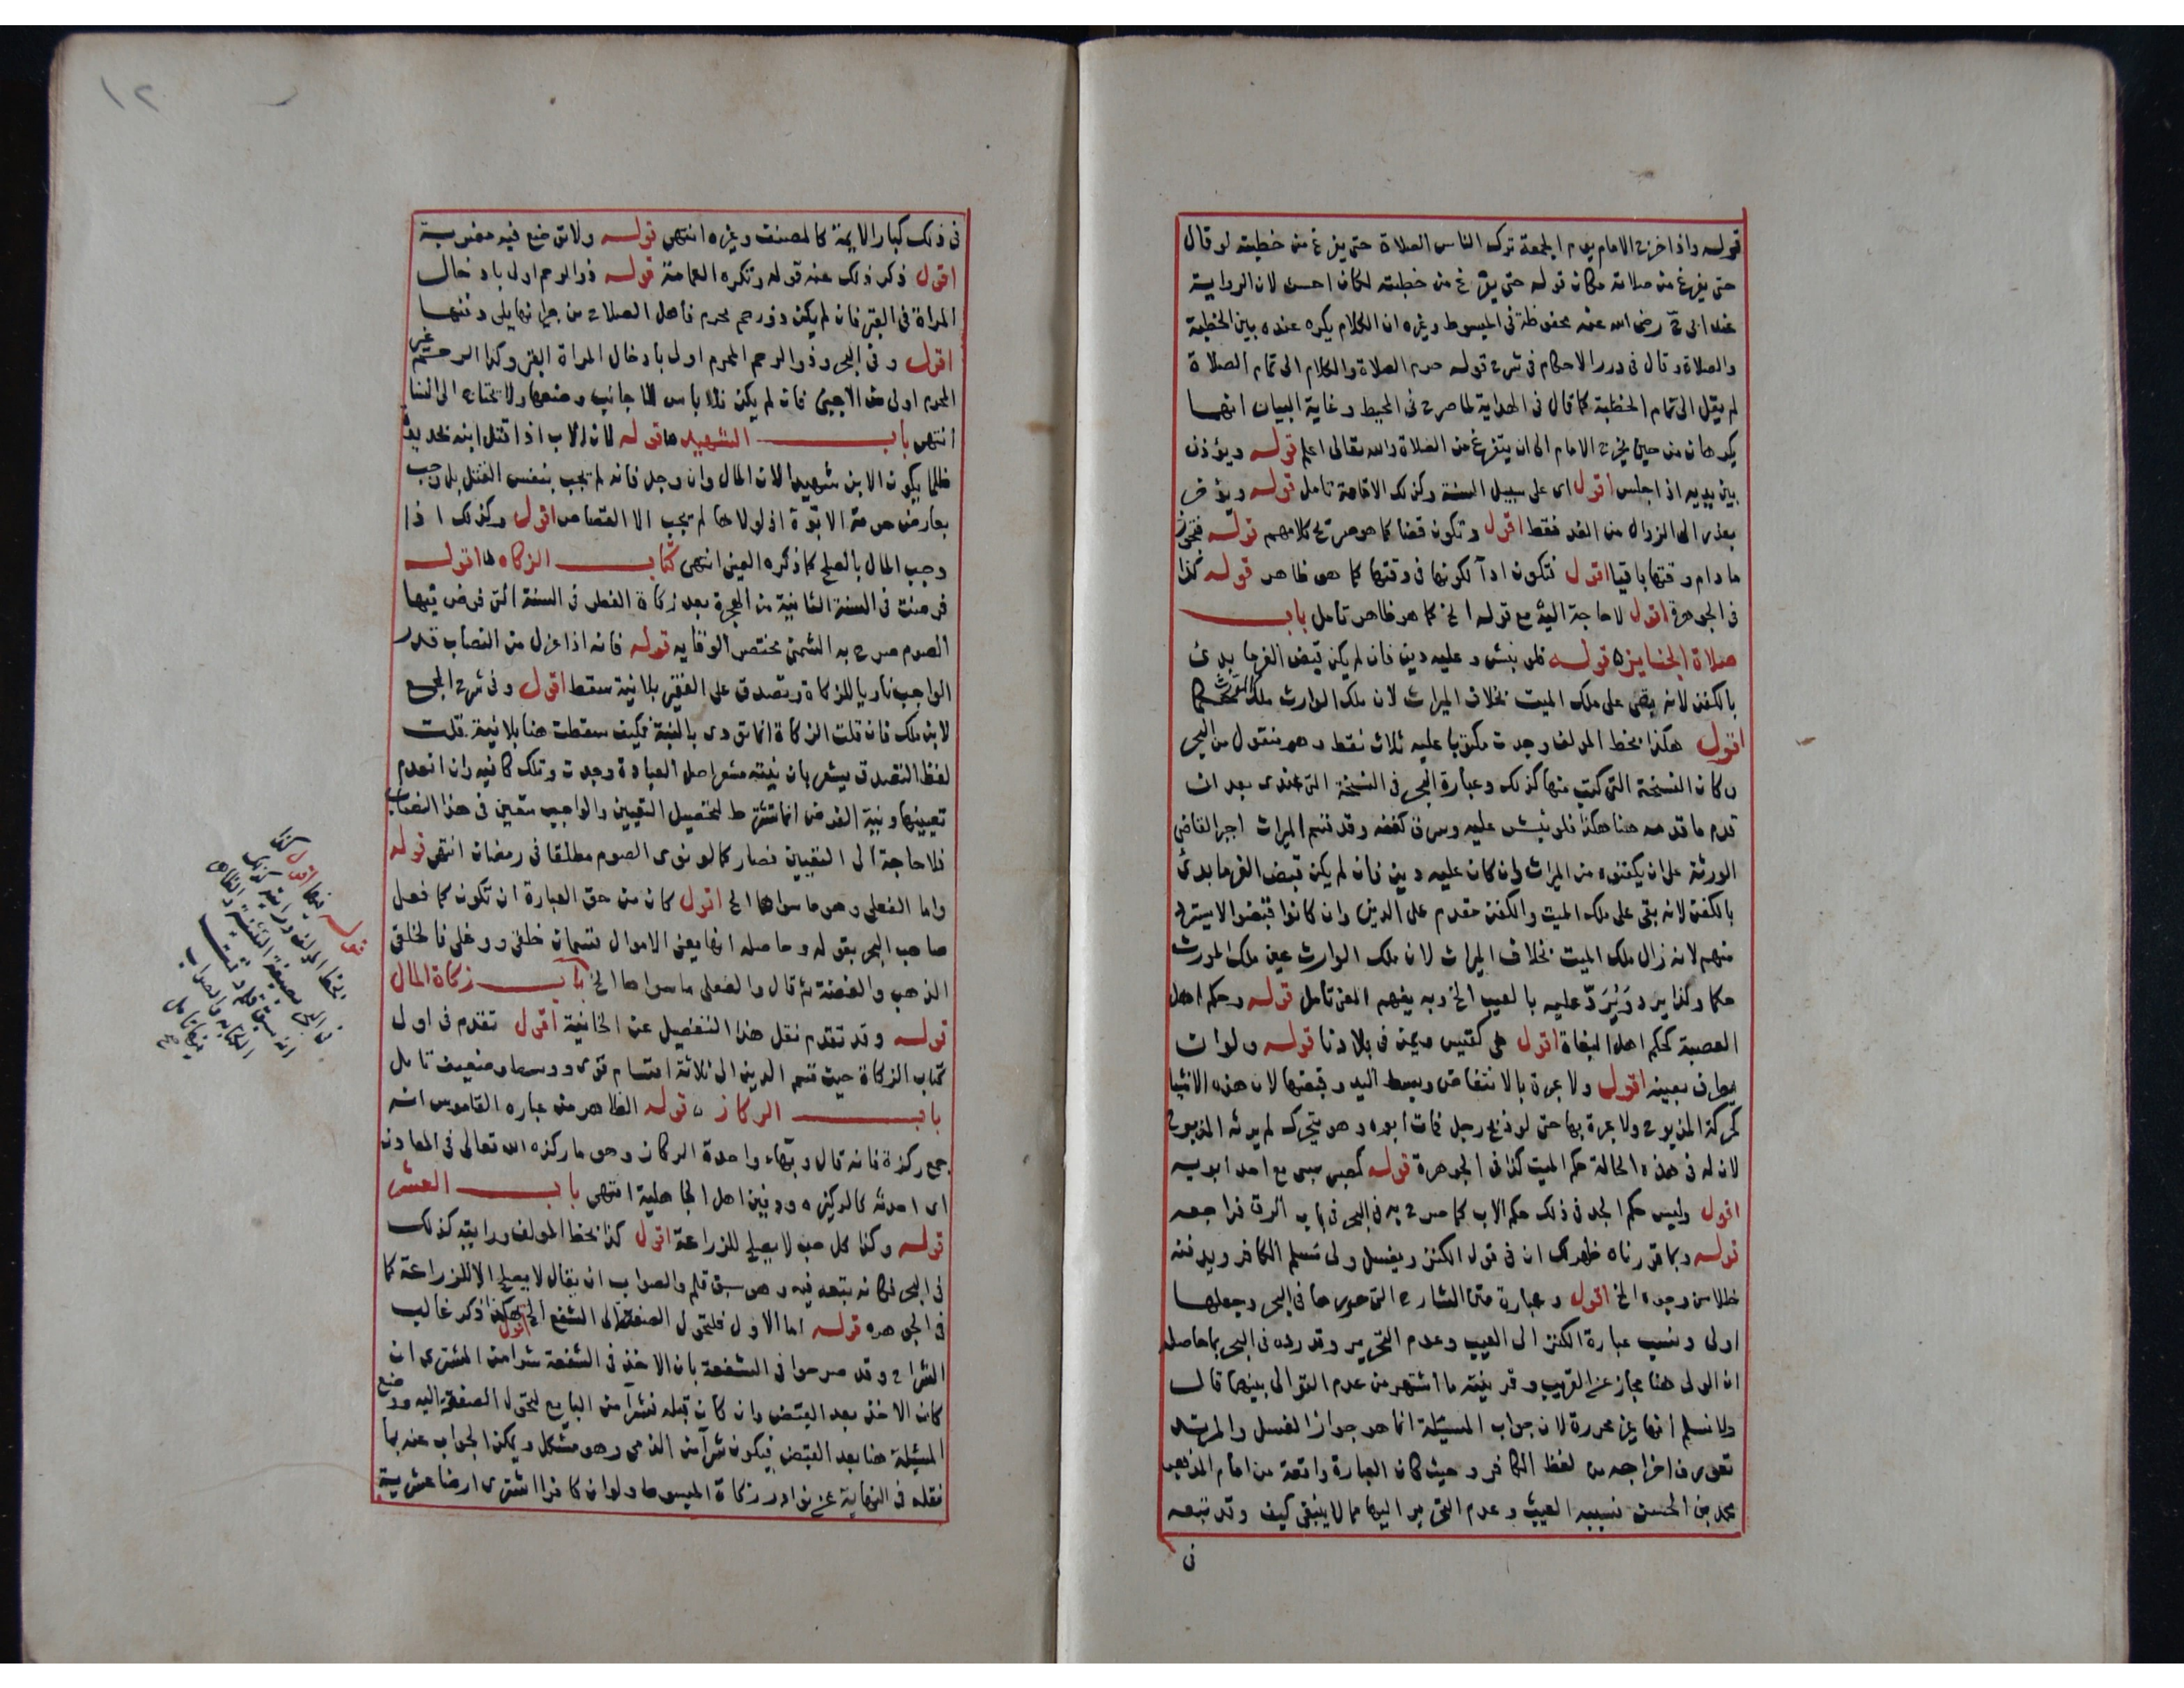 قوله واذا خرج الامام يوم الجمعة ترك الناس الصلاة حتى يفرغ من خطبته لو قال
حتى يفرغ من صلاته مكان قوله حتى يفرغ من خطبته لكان احسن لان الرواية
عند ابى ح رضى الله عنه محفوظة فى المبسوط وغيره ان الكلام يكره عنده بين الخطبة
والصلاة وقال فى درر الاحكام فى شرح قوله حرم الصلاة والكلام الى تمام الصلاة
لم يقل الى تمام الخطبة كما قال فى الهداية لما صرح فى المحيط وغاية البيان انهما
يكرهان من حين يخرج الامام الى ان يتفرغ من الصلاة والله تعالى اعلم قوله ويؤذن
بين يديه اذا جلس اقول اى على سبيل السنة وكذلك الاقامة تامل قوله ويؤخر
بعذر الى الزوال من الغد فقط اقول وتكون قضا كما هو صريح كلامهم قوله فتجوز
ما دام وقتها باقيا اقول فتكون ادآ لكونها فى وقتها كما هو ظاهر قوله كذا
فى الجوهرة اقول لا حاجة اليه مع قوله الخ كما هو ظاهر تامل باب
صلاة الجنايزه قوله فلو نبش وعليه دين فان لم يكن قبض الغرما بدئ
بالكفن لانه بقى على ملك الميت بخلاف الميراث لان ملك الوارث ملك حكما
اقول هكذا بخط المولف وجدت مكتوبا عليه ثلاث نقط وهو منقول من البحر
وكان النسخة التى كتب منها كذلك وعبارة البحر فى النسخة التى عندى بعد ان
قدم ما قدمه هنا هكذا فلو نبش عليه وسرق كفنه وقد قسم الميراث اجبر القاضى
الورثة على ان يكفنوه من الميراث وان كان عليه دين فان لم يكن قبض الغرما بدئ
بالكفن لانه بقى على ملك الميت والكفن مقدم على الدين وان كانوا قبضوا لا يسترد
منهم لانه زال ملك الميت بخلاف الميراث لان ملك الوارث عين ملك المورث
حكما وكذا يرد ويرد عليه بالعيب الخ وبه يفهم المعنى تامل قوله وحكم اهل
العصبة كحكم اهل البغاة اقول هى كقيس ويمن فى بلادنا قوله ولو ان
يطرف بعينه اقول ولا عبرة بالانتفاض وبسط اليد وقبضها لان هذه الاشيا
كحركة المذبوح ولا عبرة بها حتى لو ذبح رجل فمات ابوه وهو يتحرك لم يرثه المذبوح
لان له فى هذه الحالة حكم الميت كذا فى الجوهرة قوله كصبى سبى مع احد ابويه
اقول وليس حكم الجد فى ذلك حكم الاب كما صرح به فى البحر فى باب الرق فراجعه
قوله وبما قررناه ظهر لك ان فى قول الكنز ويغسل ولى مسلم الكافر ويدفنه
خللا من وجوه الخ اقول وعبارة متن الشارح التى حررها فى البحر وجعلها
اولى ونسب عبارة الكنز الى العيب وعدم التحرير وقد رده فى البحر بما حاصله
ان الولى هنا مجاز عن القريب وقرينته ما اشتهر من عدم التوالى بينهما قال
ولا نسلم انها غير محررة لان جواب المسئلة انما هو جواز الغسل والمرتد
تعورف اخراجه من لفظ الكافر وحيث كان العبارة واقعة من امام المذهب
محمد بن الحسن نسبه العيب وعدم التحرير اليها مما لا ينبغى كيف وقد تبعه
فى
١٢
فى ذلك كبار الايمة كالمصنف وغيره انتهى قوله ولا ... فيه مضربة
اقول ذكر ذلك عند قوله وتكره العمامة قوله ذو الرحم اولى بادخال
المراة فى القبر فان لم يكن ذو رحم محرم فاهل الصلاح من جيرانها يلى دفنها
اقول وفى البحر وذو الرحم المحرم اولى بادخال المراة القبر وكذا الرحم غير
المحرم اولى من الاجنبى فان لم يكن فلا باس للاجانب وضعها ولا يحتاج الى النسا
انتهى باب الشهيد ها قوله لان الاب اذا قتل ابنه بحديدة
ظلما يكون الابن شهيدا لان المال وان وجب فانه لم يجب بنفس القتل بل وجب
بعارض حرمة الابوة اذ لولاها لم يجب الا القصاص اقول وكذلك اذا
وجب المال بالصلح كما ذكره العينى انتهى كتاب الزكاه ها قوله
فرضت فى السنة الثانية من الهجرة بعد زكاة الفطر فى السنة التى فرض فيها
الصوم صرح به الشمنى مختصر الوقايه قوله فانه اذا عزل من النصاب قدر
الواجب ناويا للزكاة وتصدق على الفقير بلا نية سقط اقول وفى شرح المجمع
لابن ملك فان قلت الزكاة انما تؤدى بالنية فكيف سقطت هنا بلا نية قلت
لفظ التصدق يشعر بان نيته مشعر اصل العبادة وجدت وتلك كافيه وان انعدم
تعيينها ونية الفرض انما تشترط لتحصيل التعيين والواجب متعين فى هذا النصاب
فلا حاجة الى التعيين فصار كما لو نوى الصوم مطلقا فى رمضان انتهى قوله
واما الفعلى وهو ما سواها الخ اقول كان من حق العبارة ان تكون كما فعل
صاحب البحر بقوله وحاصله انها يعنى الاموال قسمان خلقى وفعلى فالخلقى
الذهب والفضة ثم قال والفعلى ما سواها الخ باب زكاة المال
قوله وقد تقدم نقل هذا التفصيل عن الخانية اقول تقدم فى اول
كتاب الزكاة حيث قسم الدين الى ثلاثة اقسام قوى ووسط وضعيف تامل
باب الركاز قوله الظاهر من عباره القاموس انه
جمع ركزة فانه قال وبهاء واحدة الركاز وهو ما ركزه الله تعالى فى المعادن
اى احدثه كالركيزه ودفين اهل الجاهلية انتهى باب العشر
قوله وكذا كل حب لا يصلح للزراعة اقول كذا بخط المولف ورايته كذلك
فى البحر فكانه تبعه فيه وهو سبق قلم والصواب ان يقال لا يصلح الا للزراعة كما
فى الجوهره قوله اما الاول فلتحول الصفقة الى الشفيع الخ اقول هكذا ذكر غالب
الشراح وقد صرحوا فى الشفعة بان الاخذ فى الشفعة شرا من المشترى ان
كان الاخذ بعد القبض وان كان قبله فشرآ من البايع لتحول الصفقة اليه ووضع
المسئلة هنا بعد القبض فيكون شرآ من الذمى وهو مشكل ويمكن الجواب عنه بما
نقله فى النهاية عن نوادر زكاة المبسوط ولو ان كافرا اشترى ارضا عشرية
قوله ... اقول كذا
بخط المولف ورايته كذلك
فى البحر بصيغة التثنية والظاهر
انه سبق قلم ...
... والصواب
...